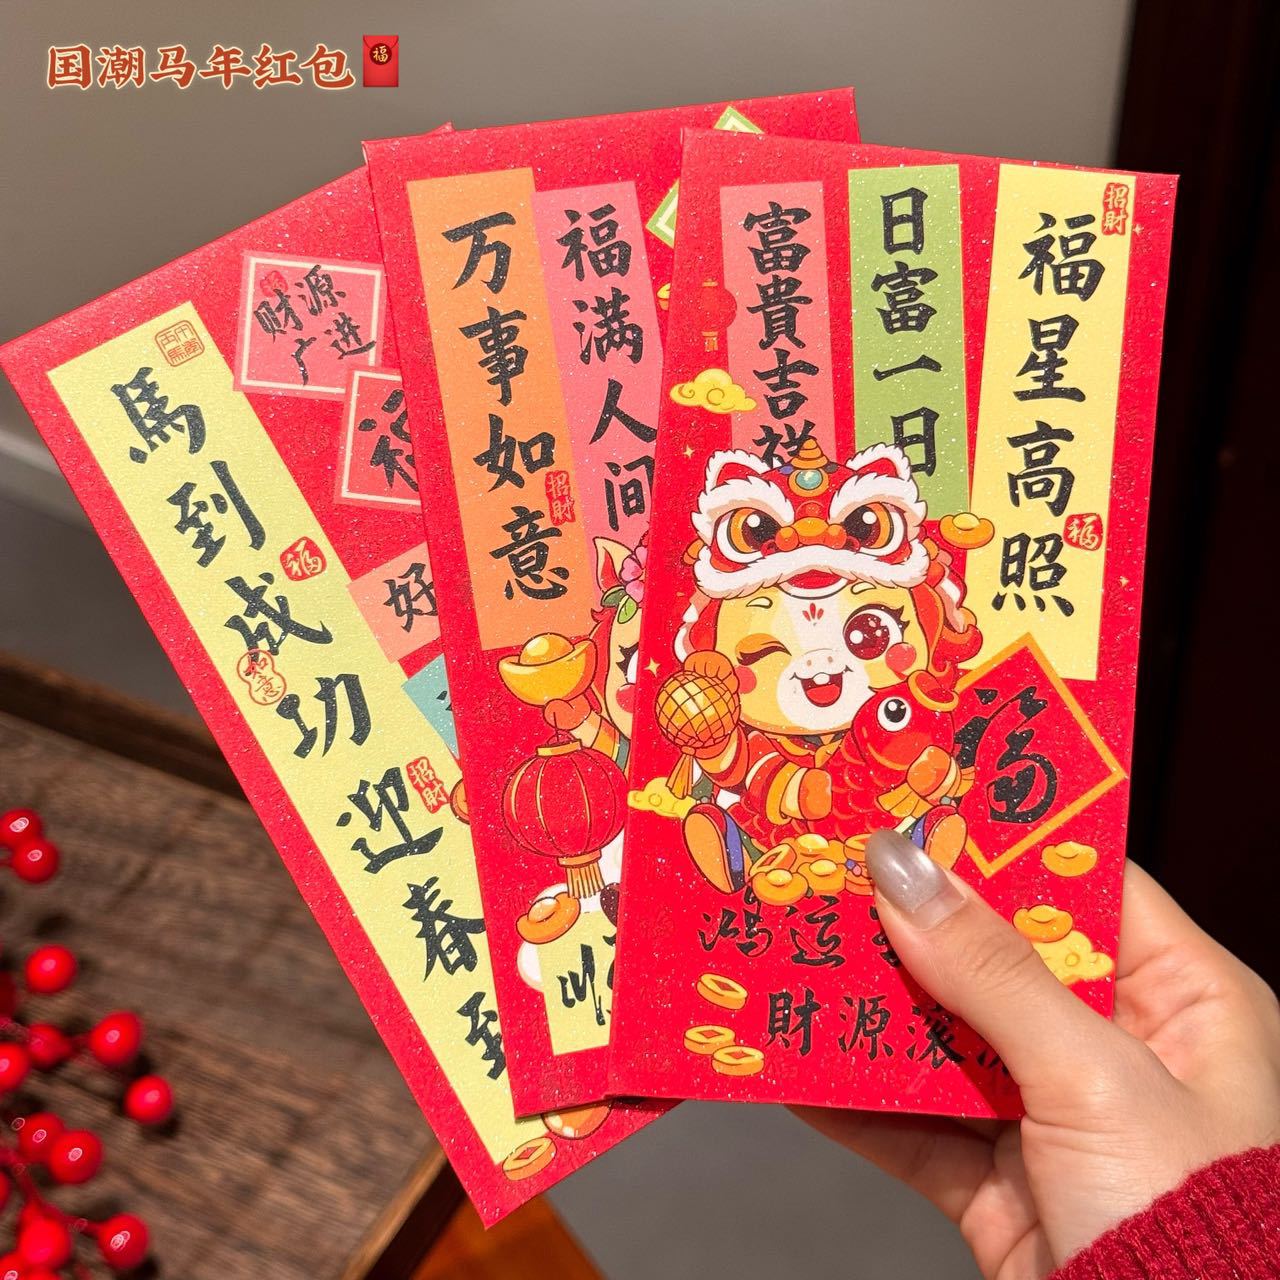 国潮马年红包
福
馬到成功迎春到
财源
广进
福
好
如意
招財
福
万事如意
招財
福满人间
顺
富貴吉祥
日富一日
福星高照
招財
福
福
鴻運
財源滚